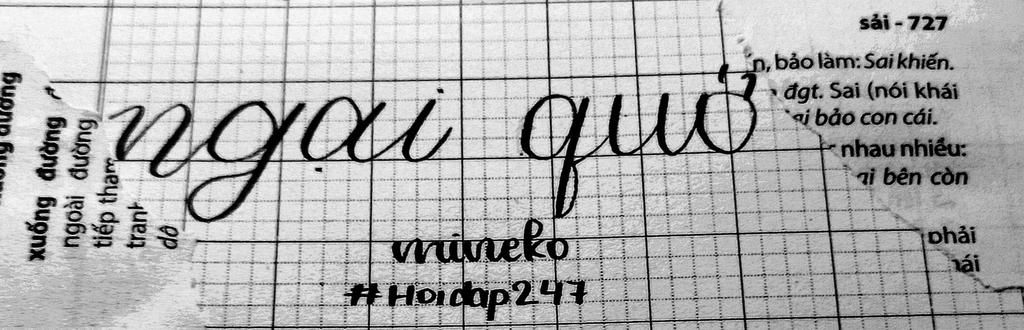 sải - 727
n, bảo làm: Sai khiến.
đgt. Sai (nói khái
ai bảo con cái.
nhau nhiều:
ai bên còn
phải
ngại quở
mineko
#Hoidap247
xuống đường
ngoài đường
tiếp tham
tranh
đô